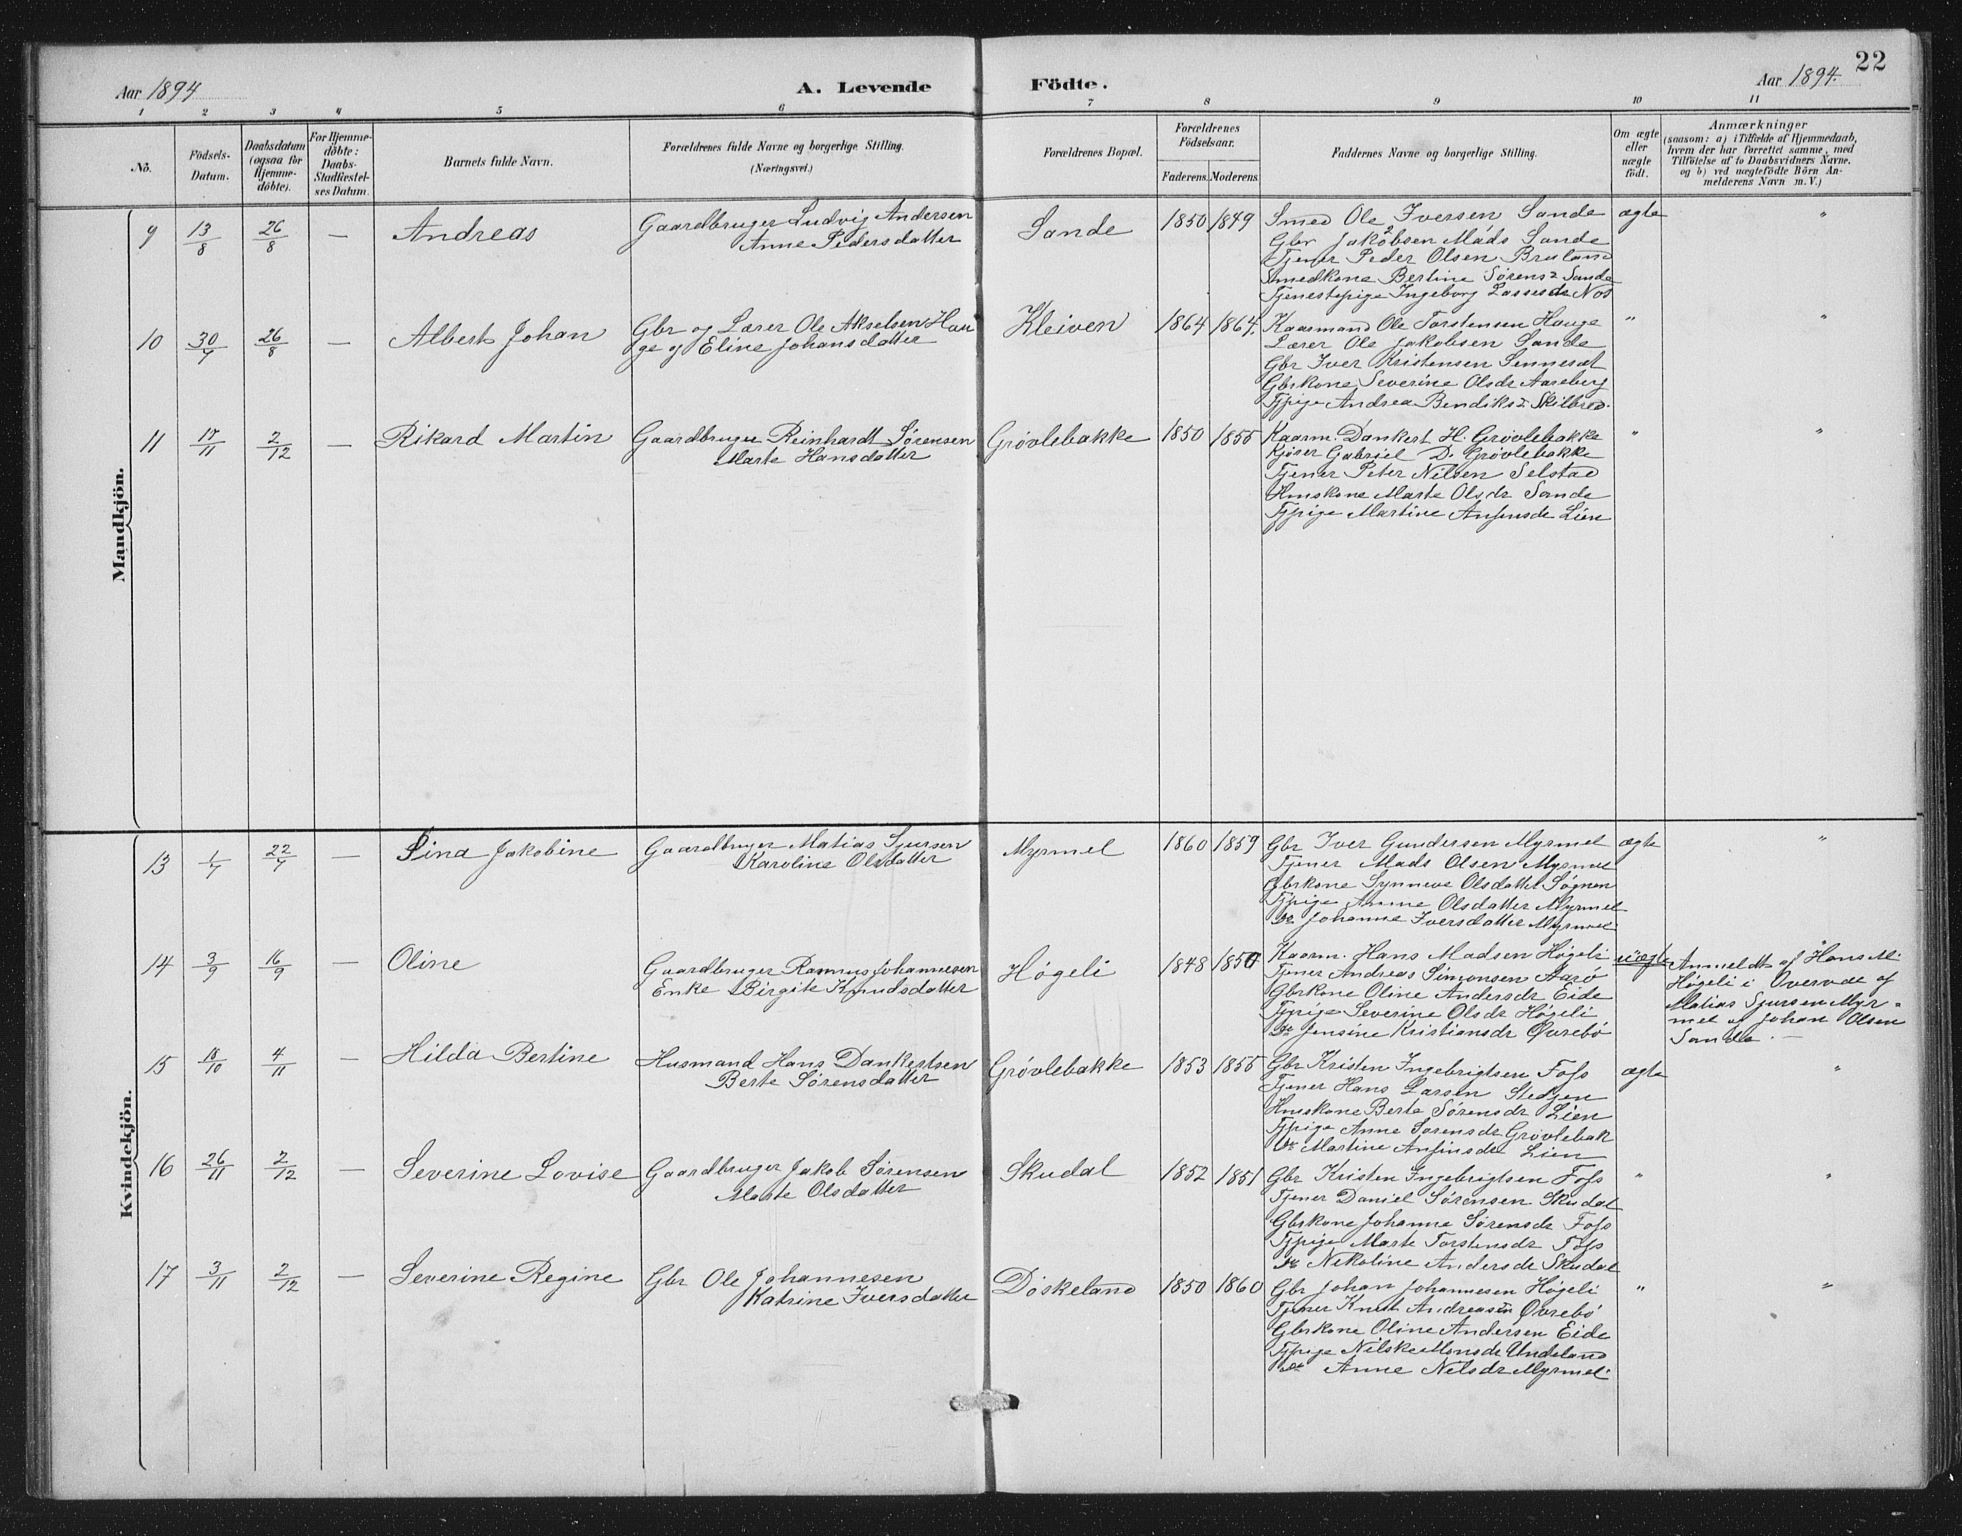 22
Aar 1894
A. Levende Födte.
Aar 1894.
1 2 3 4 5 6 7 8 9 10 11
No.
Födsels-
Datum.
Daabsdatum
(ogsaa for
Hjemme-
döbte).
For Hjemme-
döbte:
Daabs-
Stadfæstel-
ses Datum.
Barnets fulde Navn.
Forældrenes fulde Navne og borgerlige Stilling.
(Næringsvei.)
Forældrenes Bopæl.
Forældrenes
Födselsaar.
Faderens. Moderens.
Faddernes Navne og borgerlige Stilling.
Om ægte
eller
uægte
födt.
Anmærkninger
(saasom: a) i Tilfælde af Hjemmedaab,
hvem der har forrettet samme, med
Tilföielse af to Daabsvidners Navne,
og b) ved uægtefödte Börn An-
melderens Navn m. V.)
Mandkjön.
9 13/8 26/8 — Andreas
Gaardbruger Ludvig Andersen
Anne Pedersdatter
Sande 1850 1849
Smed Ole Iversen Sande
Gbr Jakobsen Mads Sande
Tjener Peder Olsen Bruland
Smedkone Bertine Sørens Sande
Tjenestepige Ingeborg Lassesdr Nos
ægte "
10 30/7 26/8 — Albert Johan
Gbr og Lærer Ole Akselsen Hau
ge og Eline Johansdatter
Kleiven 1864 1864.
Kaarmand Ole Torstensen Hauge
Lærer Ole Jakobsen Sande
Gbr Iver Kristensen Sennesæt
Gbrkone Severine Olsdr Aareberg
Tjpige Andrea Bendiks Skilbred.
" "
11 17/11 2/12 — Rikard Martin
Gaardbruger Reinhardt Sørensen
Marte Hansdatter
Grøvlebakke 1850 1855
Kaarm. Dankert H. Grøvlebakke
Kjører Gabriel D. Grøvlebakke
Tjener Peter Nilsen Selstad
Hmskone Marte Olsdr Sande
Tjpige Martine Ansinsdr Lien
" "
Kvindekjön.
13 1/7 22/7 — Sina Jakobine
Gaardbruger Matias Sjursen
Karoline Olsdatter
Myrmel 1860 1859
Gbr Iver Gundersen Myrmel
Tjener Mads Olsen Myrmel
Gbrkone Synneve Olsdatter Søgnen
Tjpige Anne Olsdatter Myrmel
do Johanne Iversdatter Myrmel
ægte "
14 3/9 16/9 — Oline
Gaardbruger Rasmus Johannesen
Enke Birgite Knudsdatter
Høgeli 1848 1850
Kaarm. Hans Madsen Høgeli
Tjener Andreas Simonsen Aarø
Gbrkone Oline Andersdr Eide
Tjpige Severine Olsdr Høgeli
do Jensine Kristiansdr Øvrebø
uægte
Anmeldt af Hans M.
Høgeli i Overvær af
Matias Sjursen Myr-
mel og Johan Olsen
Sande. —
15 18/10 4/11 — Hilda Bertine
Husmand Hans Dankertsen
Berte Sørensdatter
Grøvlebakke 1853 1855
Gbr Kristen Ingebrigtsen Foss
Tjener Hans Larsen Stedjen
Hmskone Berte Sørensdr Lien
Tjpige Anne Sørensdr Grøvlebak
do Martine Ansinsdr Lien
ægte "
16 26/11 2/12 — Severine Lovise
Gaardbruger Jakob Sørensen
Marte Olsdatter
Skudal 1852 1851
Gbr Kristen Ingebrigtsen Foss
Tjener Daniel Sørensen Skudal
Gbrkone Johanne Sørensdr Foss
Tjpige Marte Torstensdr Foss
do Nikoline Andersdr Skudal
" "
17 3/11 2/12 — Severine Regine
Gbr Ole Johannesen
Katrine Iversdatter
Døskeland 1850 1860
Gbr Johan Johannesen Høgeli
Tjener Knut Andreassen Øvrebø
Gbrkone Oline Andersen Eide
Tjpige Nilske Monsdr Undeland
do Anne Nelsdr Myrmel
" "